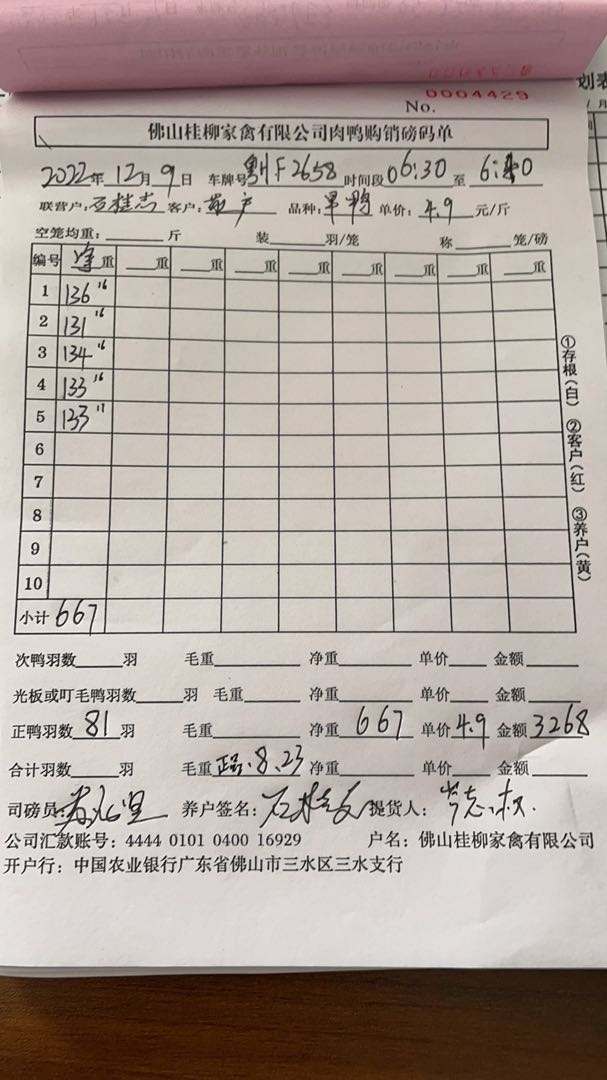 划表
月
0004429
No.
佛山桂柳家禽有限公司肉鸭购销磅码单
2022年12月9日 车牌号 粤HF2658 时间段 06:30 至 6:40
联营户: 石桂志 客户: 品种: 单鸭 单价: 4.9 元/斤
空笼均重:______斤 装______羽/笼 称______笼/磅
编号 净重 ___重 ___重 ___重 ___重 ___重 ___重 ___重
1 136 16
2 131 16
3 134 16
4 133 16
5 133 17
6
7
8
9
10
小计 667
①存根(白) ②客户(红) ③养户(黄)
次鸭羽数_____羽 毛重______ 净重______ 单价____ 金额_____
光板或叮毛鸭羽数_____羽 毛重______ 净重______ 单价____ 金额_____
正鸭羽数 81 羽 毛重______ 净重 667 单价 4.9 金额 3268
合计羽数_____羽 毛重 8.23 净重______ 单价____ 金额_____
司磅员: 养户签名: 提货人:
公司汇款账号: 4444 0101 0400 16929 户名: 佛山桂柳家禽有限公司
开户行: 中国农业银行广东省佛山市三水区三水支行